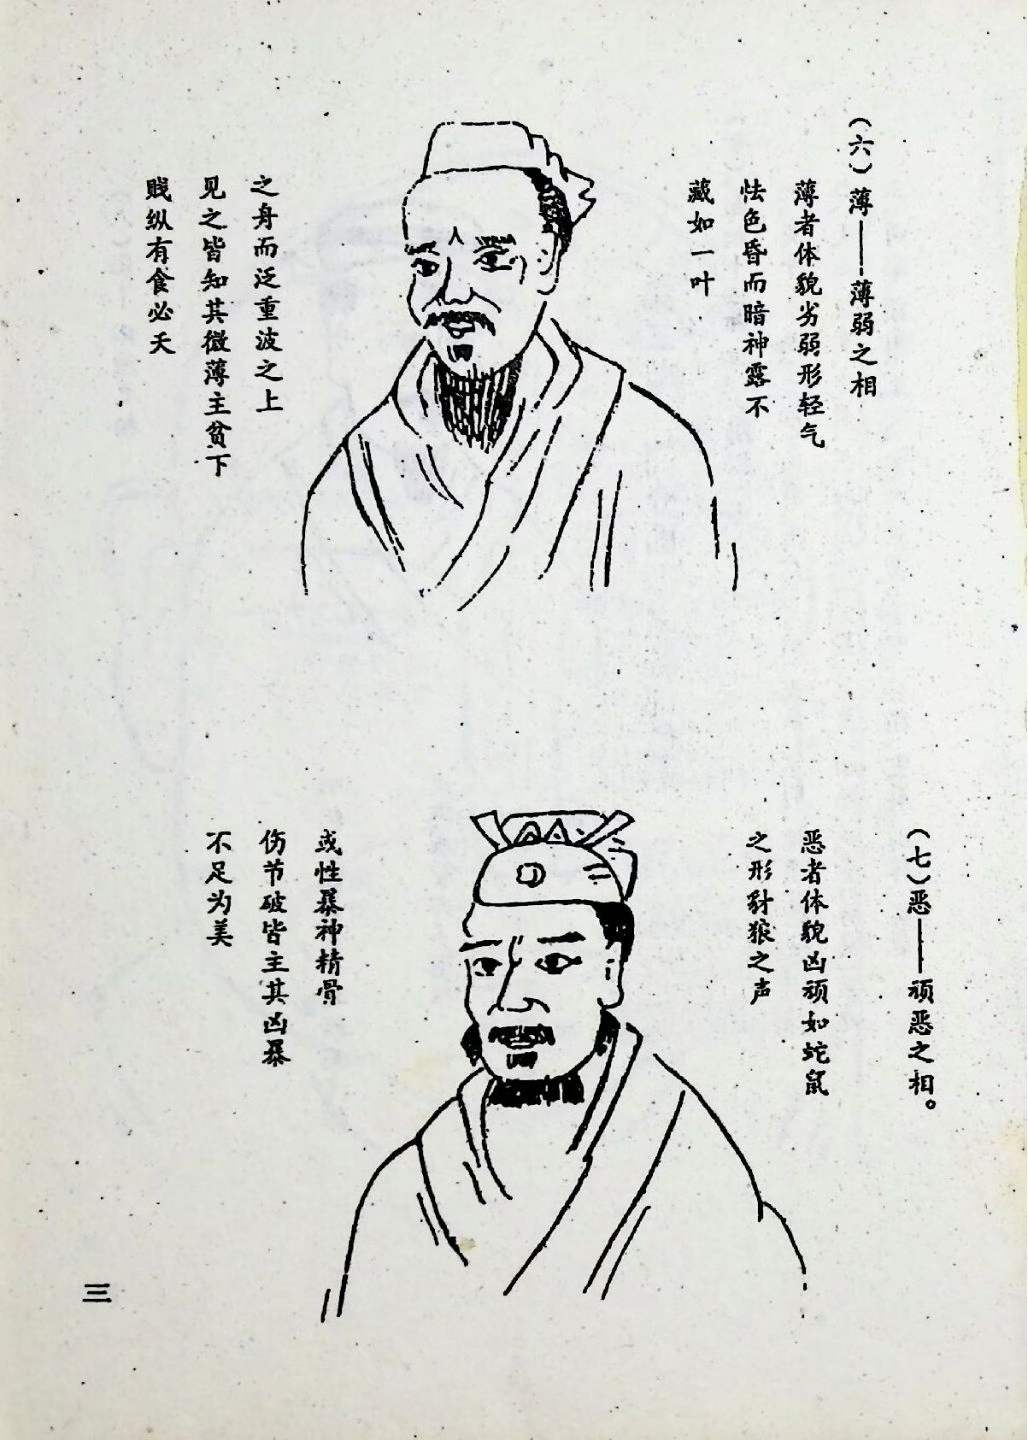 （六）薄——薄弱之相
薄者体貌劣弱形轻气
怯色昏而暗神露不
藏如一叶
之舟而泛重波之上
见之皆知其微薄主贫下
贱纵有食必夭
（七）恶——顽恶之相。
恶者体貌凶顽如蛇鼠
之形豺狼之声
或性暴神精骨
伤节破皆主其凶暴
不足为美
三